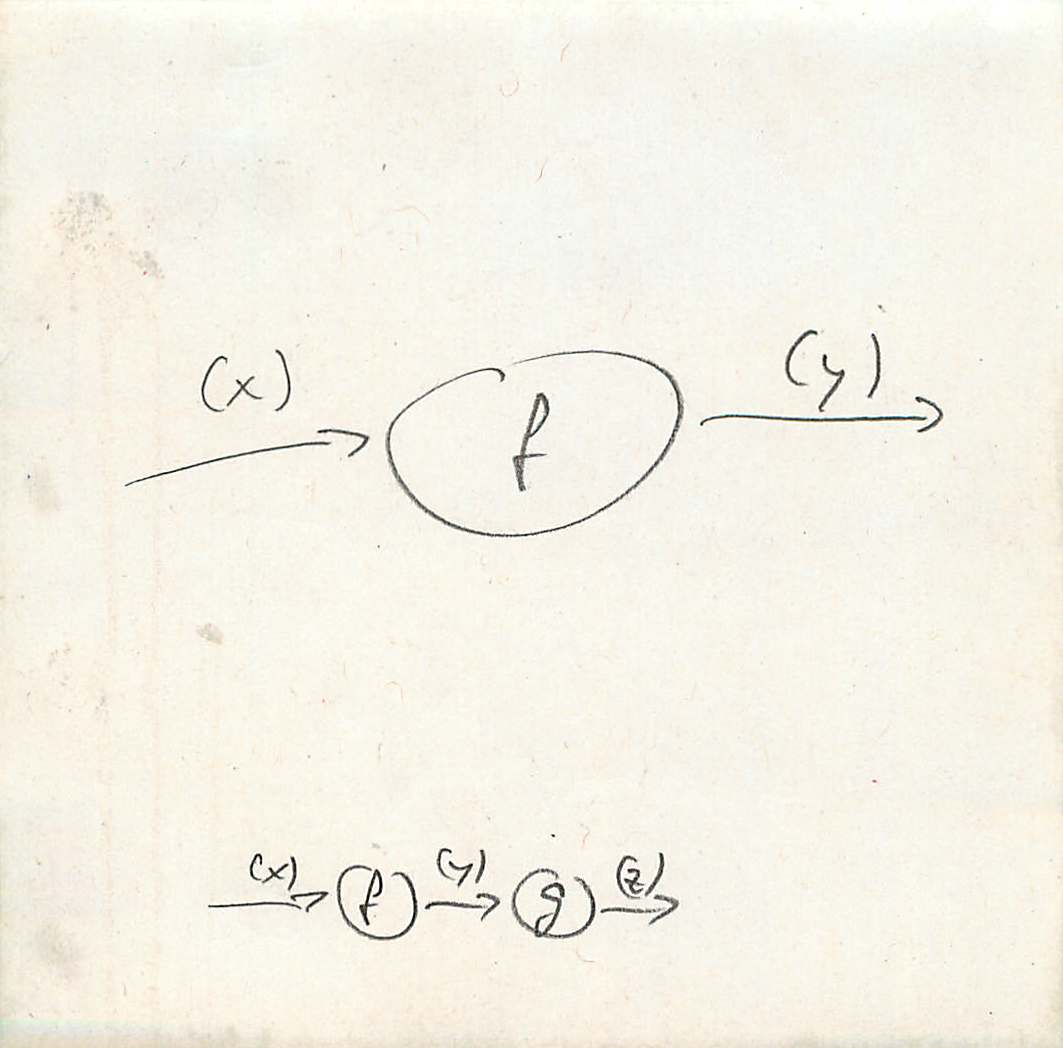 (x) f (y)
(x) f (y) g (z)